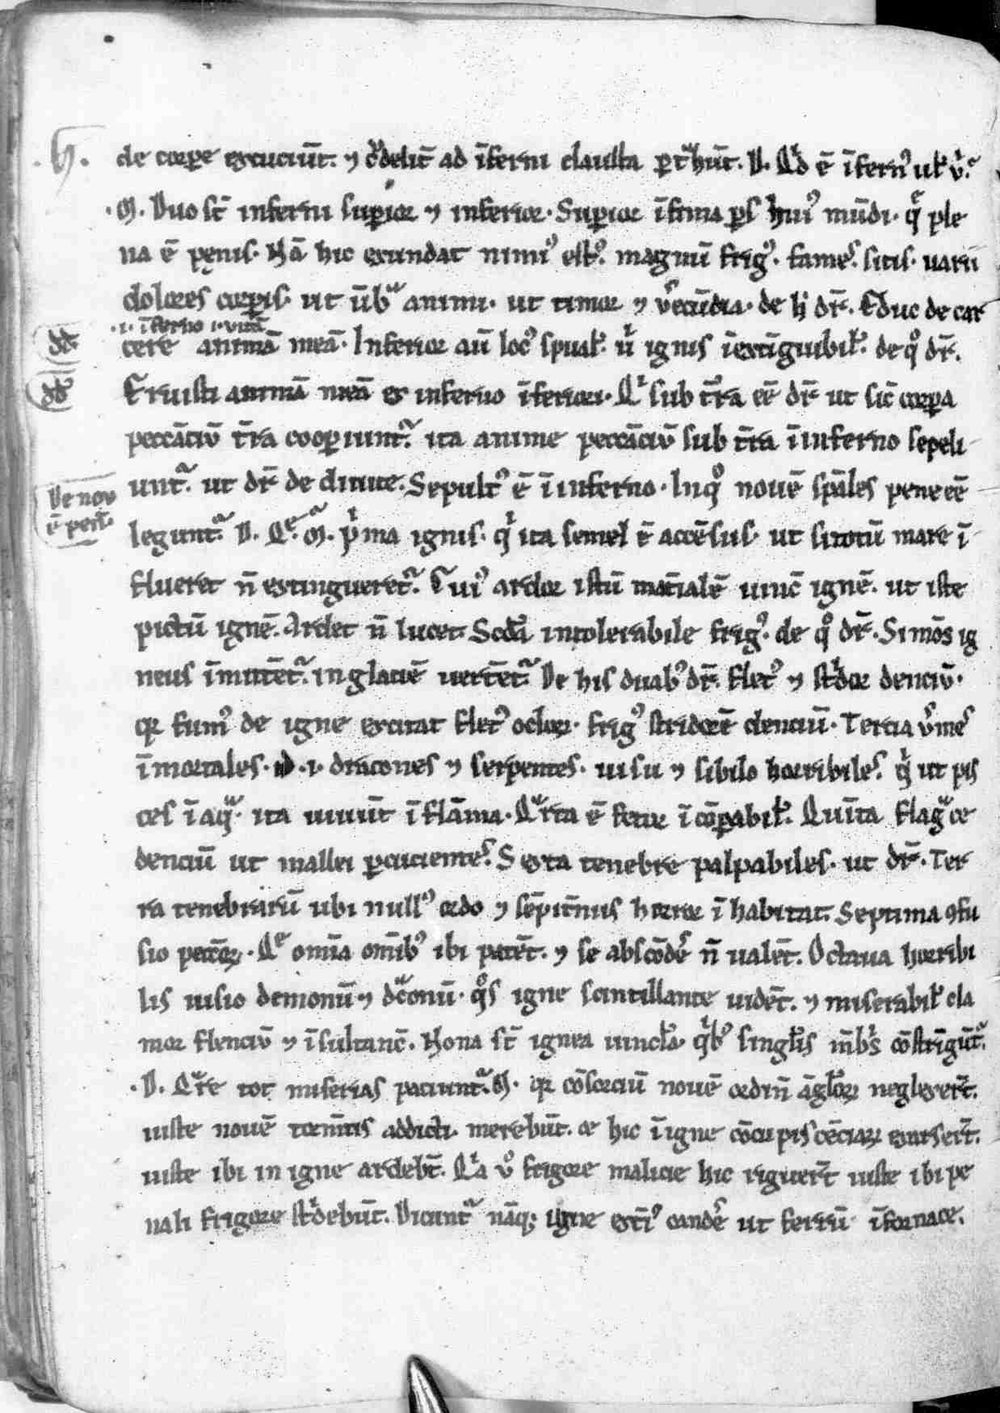 .h. de corpore excuciūt. ⁊ crudelit̄ ad īferni claustra pertrahūt. D. Quid ē īfernꝰ ul ubi.
.M. Duo st̄ inferni superior ⁊ inferior. Superior īfima pars huiꝰ mūdi. que ple
na ē penis. Nā hic exundat nimiꝰ estꝰ. magnū frigꝰ. fames. sitis. uarii
dolores corporis. ut ūbera animi. ut timor ⁊ uerecūdia. de hoc dr̄. Educ de car
.i. īferno .i. uitā
cere animā meā. Inferior aū locꝰ spūal. ubi ignis īextīguibil. de quo dr̄.
Eruisti animā meā ex inferno īferiori. Qui sub tr̄a eē dr̄ ut sic̄ corpora
peccātiū tr̄a cooperiunt. ita anime peccātiū sub tr̄a ī inferno sepeli
De nov
ē pen̄
unt. ut dr̄ de diuite. Sepultꝰ ē ī inferno. In quo nouē spāles pene eē
legunt. D. Que. M. prima ignis. qui ita semel ē accēsus. ut si totū mare ī
flueret n̄ extingueret. Cuiꝰ ardor istū mat̄ialē uinc̄ ignē. ut iste
pictū ignē. Ardet n̄ lucet. Scd̄a intolerabile frigꝰ. de quo dr̄. Si mōs ig
neus īmitteret. in glaciē uerteret. De his duabꝰ dr̄. fletꝰ ⁊ stridor denciū.
quia fumꝰ de igne excitat fletꝰ oclorum. frigꝰ stridorē denciū. Tercia uermes
īmortales. .i. dracones ⁊ serpentes. uisu ⁊ sibilo horribiles. qui ut pis
ces ī aqua. ita uiuūt ī flāma. Quarta ē fetor īcōparabil. Quīta flagra ce
denciū ut mallei percucientes. Sexta tenebre palpabiles. ut dr̄. Ter
ra tenebrarū ubi nullꝰ ordo ⁊ sēpit̄nus horror īhabitat. Septima ꝯfu
sio peccatorum. Quia omīa omībꝰ ibi patēt. ⁊ se abscōdere n̄ ualēt. Octaua horribi
lis uisio demonū ⁊ draconū. quos igne scintillante uidēt. ⁊ miserabil cla
mor flenciū ⁊ īsultanc̄. Nona st̄ ignea uincla. quibꝰ singulis mēbris cōstrīgūt.
.D. Quare tot miserias paciunt. M. quia cōsorciū nouē ordin̄ āglorum neglexert̄.
iuste nouē tormētis addicti merebūt. ⁊ hic ī igne cōcupiscēciarum exarsert̄.
iuste ibi in igne ardebt̄. Quia uero frigore malicie hic riguert̄ iuste ibi pe
nali frigore stridebūt. Dicunt nāq; igne extriꝰ candere ut ferrū ī fornace.